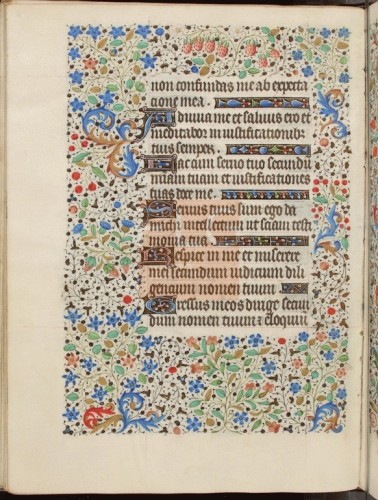 non confundas me ab expecta
cione mea.
Adiuva me et salvus ero et
meditabor in iustificationib;
tuis semper.
Fac cum servo tuo secundū
miam tuam et iustificationes
tuas doce me.
Servus tuus sum ego da
michi intellectum ut sciam testi
monia tua.
Respice in me et miserere
mei secundum iudicium dili
gencium nomen tuum.
Gressus meos dirige secun
dum nomen tuum ⁊ eloquiū